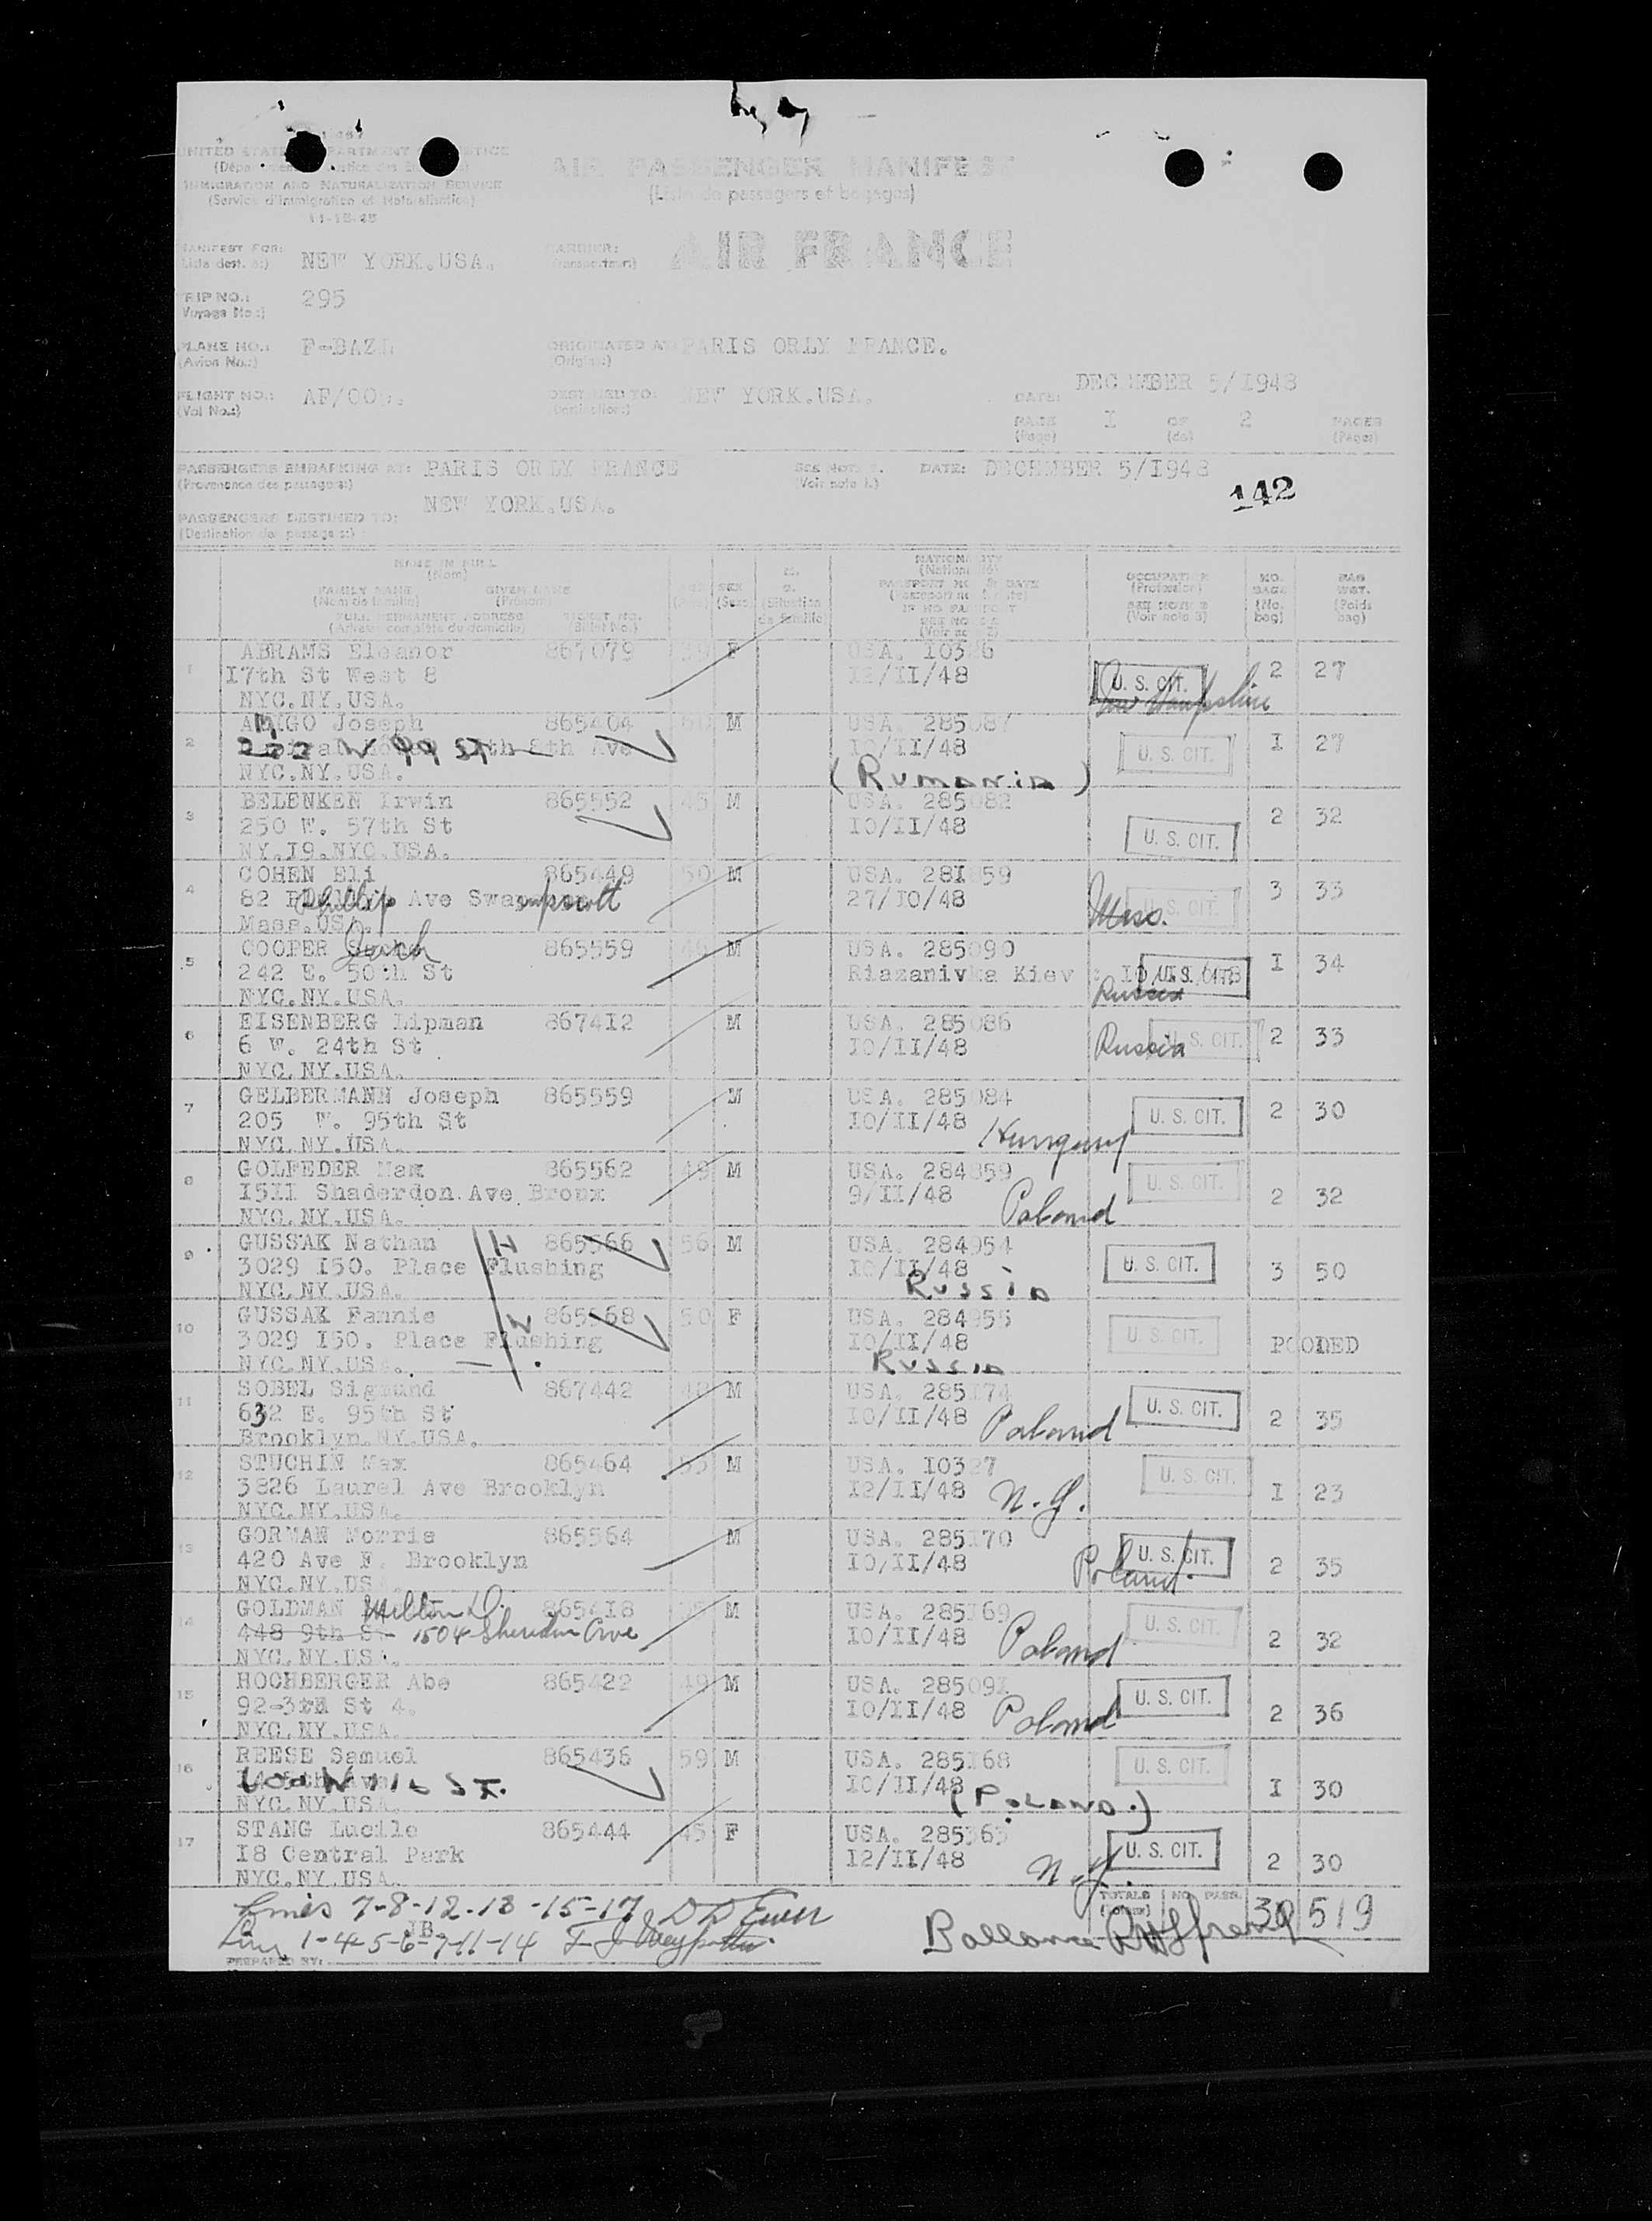 UNITED STATES DEPARTMENT OF JUSTICE
IMMIGRATION AND NATURALIZATION SERVICE
(Service d'Immigration et Naturalisation)
AIR PASSENGER MANIFEST
(Liste de passagers et bagages)
MANIFEST FOR: NEW YORK.USA. CARRIER: AIR FRANCE
(Transporteur:)
TRIP NO.: 295
(Voyage No.:)
PLANE NO.: ORIGINATED AT: PARIS ORLY FRANCE.
(Avion No.:) (Origine:)
DECEMBER 5/I948
FLIGHT NO.: DESTINED TO: NEW YORK.USA. DATE:
(Vol No.:) (Destination:) PAGE I OF 2 PAGES
(Page) (de) (Pages)
PASSENGERS EMBARKING AT: PARIS ORLY FRANCE SEE NOTE DATE: DECEMBER 5/I948
(Provenance des passagers:)
142
NEW YORK.USA.
PASSENGERS DESTINED TO:
(Destination des passagers:)
NAME IN FULL
(Nom)
FAMILY NAME GIVEN NAME SEX
(Nom de famille) (Prénom) (Sexe) (Situation de famille)
FULL PERMANENT ADDRESS TICKET NO.
(Adresse complète du domicile) (Billet No.)
NATIONALITY
PASSPORT NO. & DATE
OCCUPATION
(Profession)
(Voir note 3)
NO. BAGS
BAG WGT.
1 ABRAMS Eleanor 867079 39 F USA. I0326
I7th St West 8 I2/II/48 U. S. CIT. 2 27
NYC.NY.USA. New Hampshire
2 AMIGO Joseph 865404 M USA. 285087
222 W 99 St 8th Ave I0/II/48 U. S. CIT. I 27
NYC.NY.USA. (Rumania)
3 BELENKEN Irwin 865552 45 M USA. 285082
250 W. 57th St I0/II/48 U. S. CIT. 2 32
NY.I9.NYC.USA.
4 COHEN Eli 865449 50 M USA. 28I859
82 Phillip Ave Swampscott 27/I0/48 U. S. CIT. 3 33
Mass.USA. Mass.
5 COOPER Jack 865559 46 M USA. 285090
242 E. 50th St Riazanivka Kiev U. S. CIT. I 34
NYC.NY.USA. Russia
6 EISENBERG Lipman 8674I2 M USA. 285086
6 W. 24th St I0/II/48 Russia U. S. CIT. 2 33
NYC.NY.USA.
7 GELBERMANN Joseph 865559 M USA. 285084
205 W. 95th St I0/II/48 Hungary U. S. CIT. 2 30
NYC.NY.USA.
8 GOLFEDER Max 865562 49 M USA. 284859
I5II Shaderdon.Ave Bronx 9/II/48 Poland U. S. CIT. 2 32
NYC.NY.USA.
9 GUSSAK Nathan H 865566 56 M USA. 284954
3029 I50. Place Flushing I0/II/48 U. S. CIT. 3 50
NYC.NY.USA. Russia
10 GUSSAK Fannie W 865568 50 F USA. 284955
3029 I50. Place Flushing I0/II/48 U. S. CIT. POOLED
NYC.NY.USA. Russia
11 SOBEL Sigmund 867442 48 M USA. 285I74
632 E. 95th St I0/II/48 Poland U. S. CIT. 2 35
Brooklyn.NY.USA.
12 STUCHIN Max 865464 53 M USA. I0327
3826 Laurel Ave Brooklyn I2/II/48 N.Y. U. S. CIT. I 23
NYC.NY.USA.
13 GORMAN Morris 865564 M USA. 285I70
420 Ave F. Brooklyn I0/II/48 Poland U. S. CIT. 2 35
NYC.NY.USA.
14 GOLDMAN Milton D. 8654I8 M USA. 285I69
448 9th St 1504 Sheridan Ave I0/II/48 Poland U. S. CIT. 2 32
NYC.NY.USA.
15 HOCHBERGER Abe 865422 49 M USA. 28509I
92-3rd St 4. I0/II/48 Poland U. S. CIT. 2 36
NYC.NY.USA.
16 REESE Samuel 865436 59 M USA. 285I68
W 112 St. I0/II/48 U. S. CIT. I 30
NYC.NY.USA. (Poland.)
17 STANG Lucile 865444 45 F USA. 285363
I8 Central Park I2/II/48 N.Y. U. S. CIT. 2 30
NYC.NY.USA.
TOTALS NO. PASS. 30 519
Lines 7-8-12-13-15-17
Line 1-4-5-6-9-11-14
PREPARED BY: